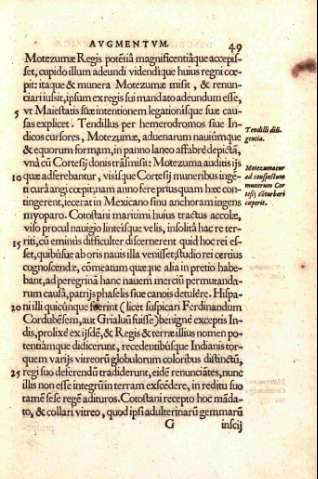 AVGMENTVM. 49
Motezumæ Regis potẽtiã magnificentiãque accepis-
set, cupido illum adeundi videndique huius regni cœ-
pit: itaque & munera Motezumæ misit, & renun-
ciari iusit, ipsum ex regis sui mandato adeundum esse,
5 vt Maiestati suæ intentionem legationisque suæ cau-
sas explicet. Tendillus per hemerodromos siue In-
dicos cursores, Motezumæ, aduenarum nauiũmque
& equorum formam, in panno lanteo affabrè depictã,
vnà cũ Cortesij donis trãsmisit: Motezuma auditis ijs
10 quæ adferebantur, visisque Cortesij muneribus ingẽ-
ti curâ angi cœpit; nam anno ferè prius quam hæc con-
tingerent, tecerat in Mexicano sinu anchoram ingens
myoparo. Cotostani maritimi huius tractus accolæ,
viso procul nauigio linteisque velis, insolitâ hac re ter-
15 riti, cũ eminùs difficulter discernerent quid hoc rei es-
set, quibúsue ab oris nauis illa venisset, studio rei certius
cognoscendæ, cõmeatum quæque alia in pretio habe-
bant, ad peregrinã hanc nauem merciũ permutanda-
rum causâ, patrijs phaselis siue canois detulêre. Hispa-
20 ni illi quicũnque fuerint (licet suspicari Ferdinandum
Cordubẽsem, aut Grialuũ fuisse) benignè exceptis In-
dis, prolixè ex ijsdẽ, & Regis & terræ illius nomen po-
tentiámque didicerunt, recedentibúsque Indianis tor-
quem varijs vitreorũ globulorum coloribus distinctũ,
25 regi suo deferendũ tradiderunt, eidẽ renunciãtes, nunc
illis non esse integrũ in terram exscẽdere, in reditu suo
tamẽ sese regẽ adituros. Cotostani recepto hoc mãda-
to, & collari vitreo, quod ipsi adulterinarũ gemmarũ
G inscij
Tendilli dili-
gentia.
Motezuma cur
ad conspectum
munerum Cor
tesij cõturbari
cœperit.